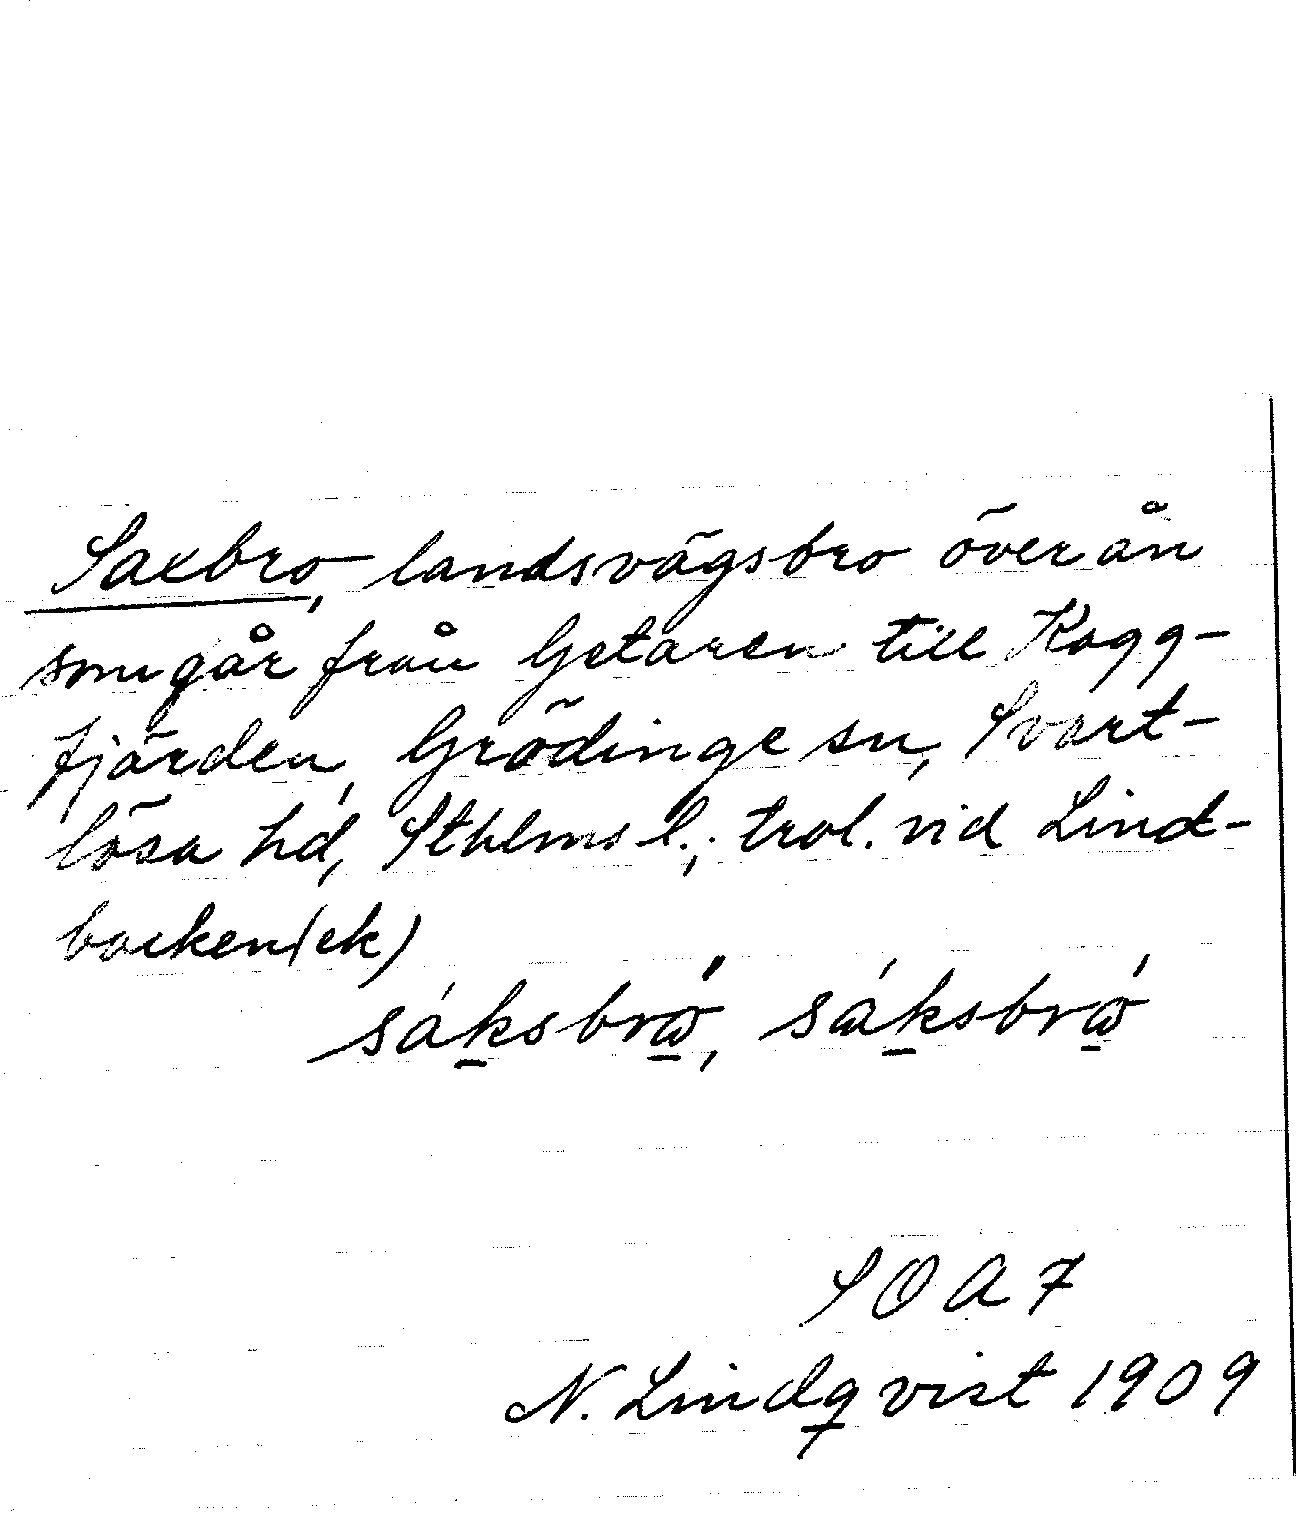 Saxbro, landsvägsbro över ån
som går från Getaren till Kagg-
fjärden, Grödinge sn, Svart-
lösa hd, Sthlms l.; trol. vid Lind-
backen (ek)
sáksbrὼ, sáksbrώ
SOA 7
N. Lindqvist 1909